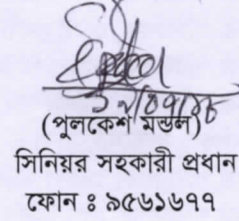 (পুলকেশ মন্ডল)
সিনিয়র সহকারী প্রধান
ফোন ঃ ৯৫৬১৬৭৭